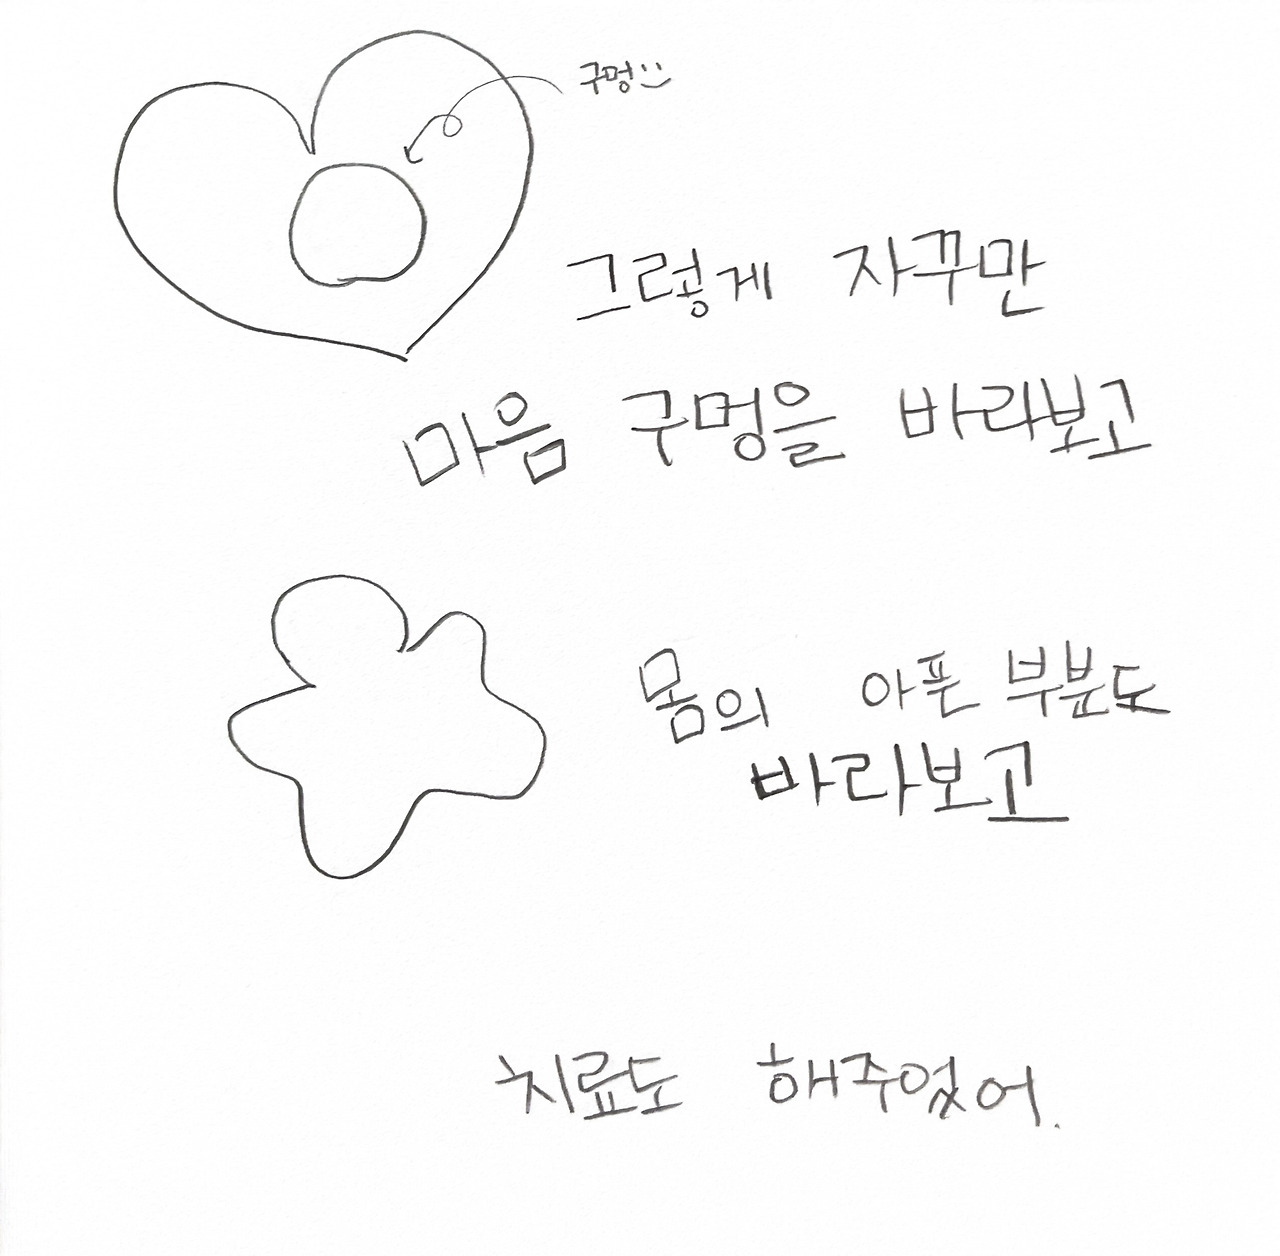 구멍
그렇게 자꾸만
마음 구멍을 바라보고
몸의 아픈 부분도
바라보고
치료도 해주었어.